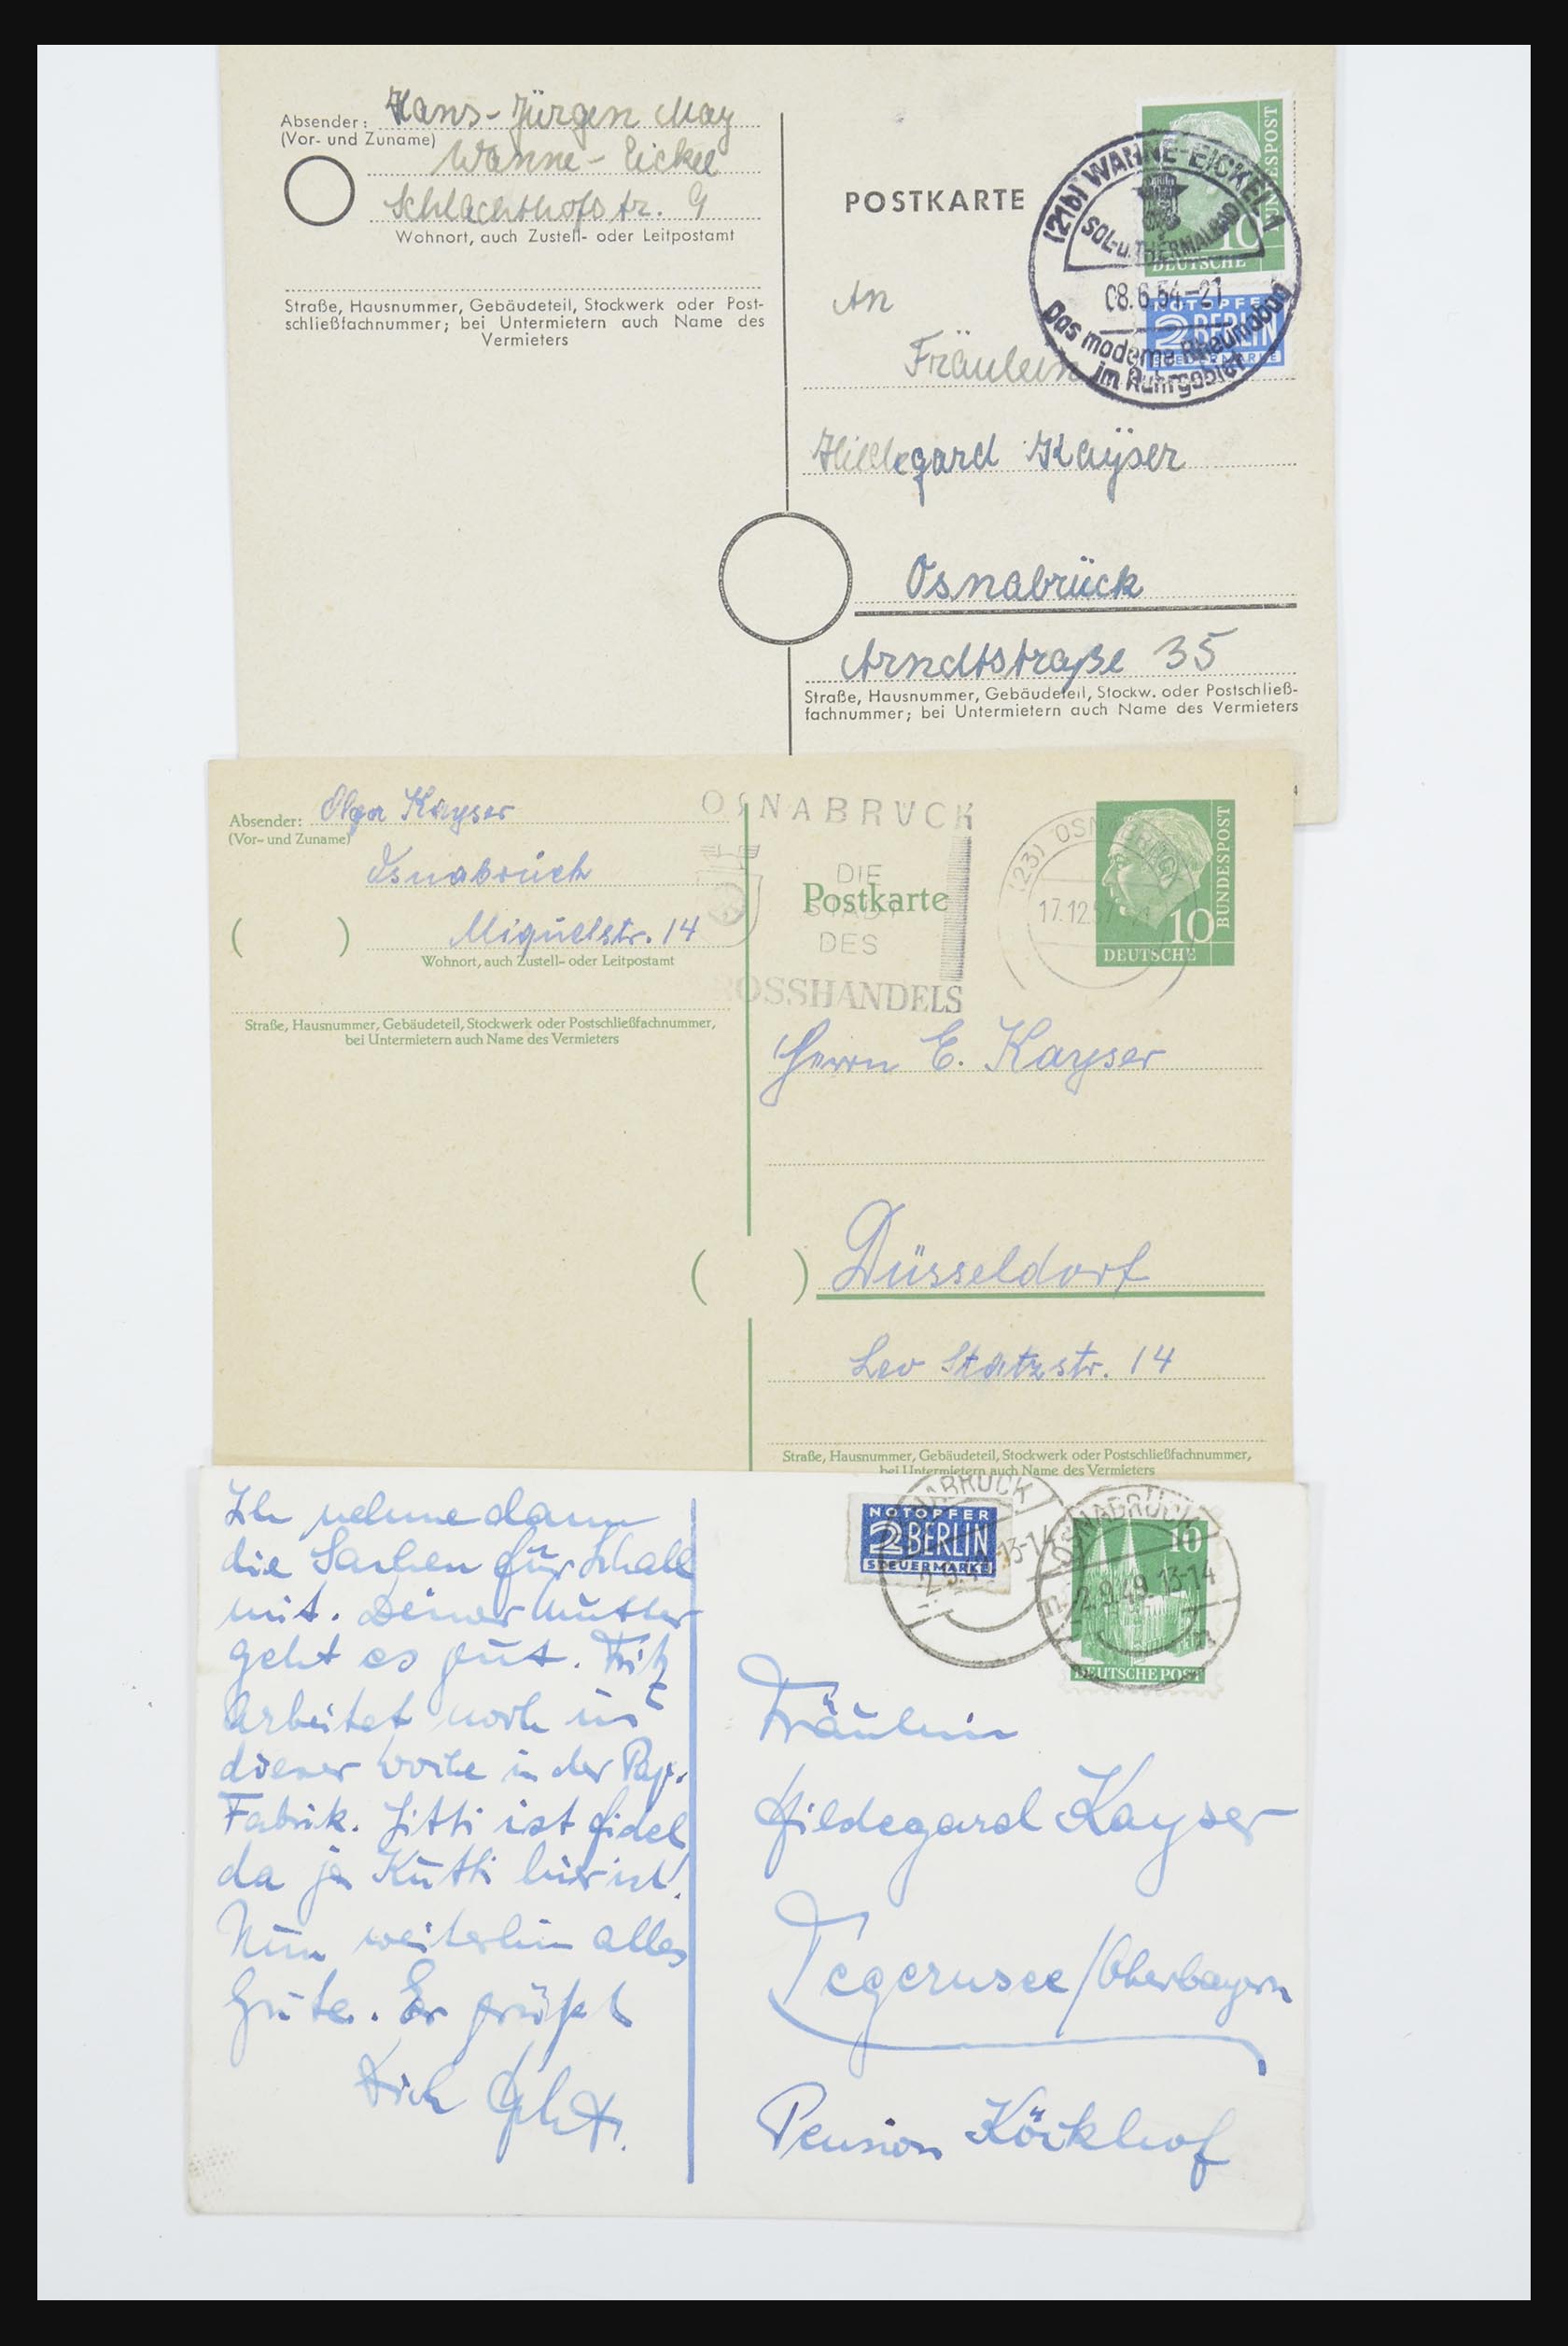 Absender: Hans-Jürgen May
(Vor- und Zuname)
Wanne-Eickel
Schlachthofstr. 9
Wohnort, auch Zustell- oder Leitpostamt
Straße, Hausnummer, Gebäudeteil, Stockwerk oder Post-
schließfachnummer; bei Untermietern auch Name des
Vermieters
POSTKARTE
BUNDESPOST
10
DEUTSCHE
(21b) WANNE-EICKEL 1
SOL-u.THERMALBAD
08.6.54-21
Das moderne Rheumabad
im Ruhrgebiet
NOTOPFER
2 BERLIN
STEUERMARKE
An
Fräulein
Hildegard Kaÿser
Osnabrück
Arndtstraße 35
Straße, Hausnummer, Gebäudeteil, Stockw. oder Postschließ-
fachnummer; bei Untermietern auch Name des Vermieters
Absender: Olga Kayser
(Vor- und Zuname)
Osnabrück
( ) Miquelstr. 14
Wohnort, auch Zustell- oder Leitpostamt
Straße, Hausnummer, Gebäudeteil, Stockwerk oder Postschließfachnummer,
bei Untermietern auch Name des Vermieters
OSNABRÜCK
DIE
STADT
DES
ROSSHANDELS
Postkarte
(23) OSNABRÜCK
17.12.57
BUNDESPOST
10
DEUTSCHE
Herrn E. Kayser
( ) Düsseldorf
Leo Statzstr. 14
Straße, Hausnummer, Gebäudeteil, Stockwerk oder Postschließfachnummer,
bei Untermietern auch Name des Vermieters
Ich nehme dann
die Sachen für
mit. Deiner Mutter
geht es gut. Fritz
arbeitet noch in
dieser Woche in der Pap.
Fabrik. Titti ist fidel
da ja Kutti hier ist!
Nun weiterhin alles
Gute. Es grüßt
Dich
NOTOPFER
2 BERLIN
STEUERMARKE
OSNABRÜCK
2.9.49.13-14
OSNABRÜCK
2.9.49.13-14
10
DEUTSCHE POST
Fräulein
Hildegard Kayser
Tegernsee/Oberbayern
Pension Köckhof